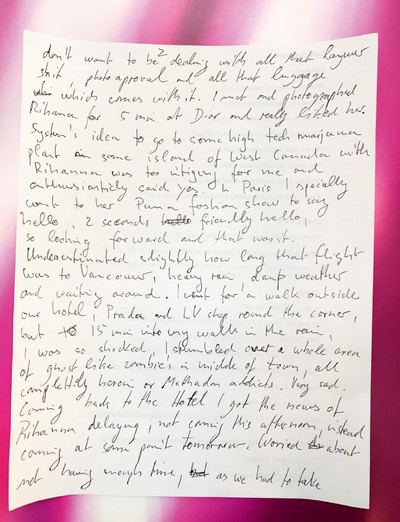 don't want to be dealing with all that lawyer
shit, photo aproval and all that luggage
which comes with it. I met and photographed
Rihanna for 5 min at Dior and really liked her.
System's idea to go to some high tech marijuana
plant on some island of West Canada with
Rihannna was too intriging for me and
enthusiasticly said yes. In Paris I specially
went to her Puma fashion show to say
hello, 2 seconds friendly hello,
so looking forward and that was it.
Underestimated slightly how long that flight
was to Vancouver, heavy rain, damp weather
and waiting around. I went for a walk outside
our hotel, Prada and LV shop round the corner,
but 15 min into my walk in the rain,
I was so shocked, I stumbled over a whole area
of ghost like zombie's in middle of town, all
completely heroin or Methadon addicts. Very sad.
Coming back to the Hotel I got the news of
Rihanna delaying, not coming this afternoon, instead
coming at some point tomorrow. Worried about
not having enough time, as we had to take